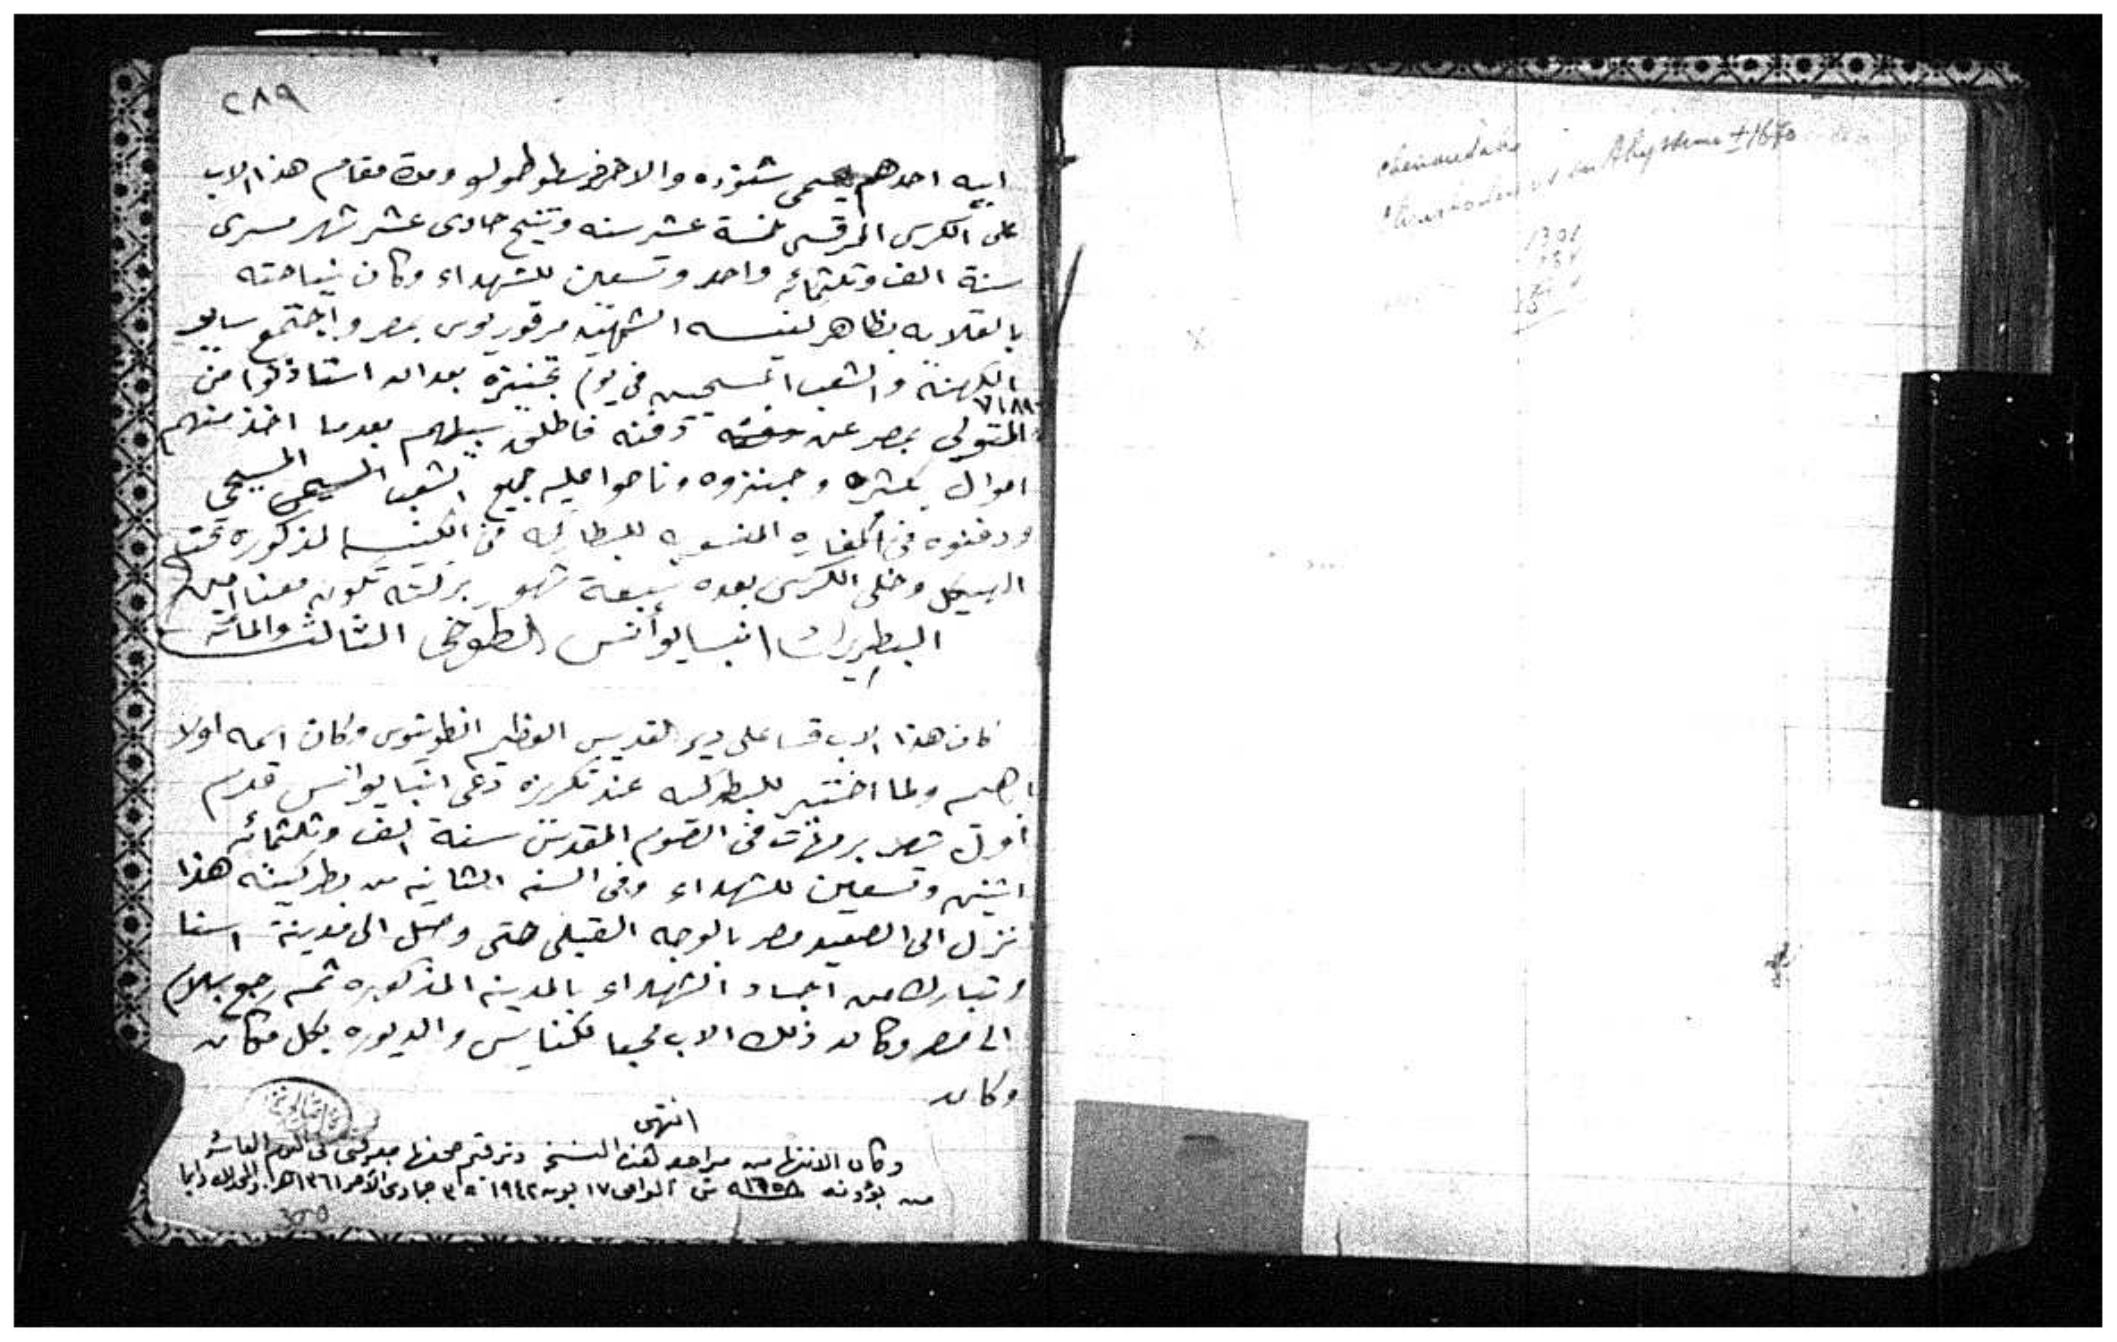 ٢٨٩
ابيه احدهم يسمى شنوده والاخر خرسطوطولو ومدة مقام هذا الاب
على الكرسى المرقسى خمسة عشر سنه وتنيح حادى عشر شهر مسرى
سنة الف وتلتمائه واحد وتسعين للشهداء وكان نياحته
بالقلايه بظاهر كنيسه الشهيد مرقوريوس بمصر واجتمع ساير
الكهنة والشعب المسيحيين فى يوم تجنيزه بعد ان استاذنوا من
المتولى بمصر عن دفنه فاطلق سبيلهم بعدما اخذ منهم
اموال كثيره وجنزوه وناحوا عليه جميع الشعب المسيحى
ودفنوه فى المغاره المنسوبه للبطاركه فى الكنيسه المذكوره تحت
الهيكل وخلى الكرسى بعده سبعة شهور بركته تكون معنا امين
البطريرك انبا يوأنس الطوخى الثالث والمائه
كان هذا الاب قسا على دير القديس العظيم انطونيوس وكان اسمه اولا
ابرهيم ولما اختير للبطركيه عند تكريزه دعى انبا يوانس قدم
اول شهر برمهات فى الصوم المقدس سنة الف وتلتمائه
اثنين وتسعين للشهداء وفى السنه الثانيه من بطركيته هذا
نزل الى الصعيد مصر بالوجه القبلى حتى وصل الى مدينة اسنا
وتبارك من اجساد الشهداء بالمدينه المذكوره ثم رجع بسلام
الى مصر وكان ذلك الاب محبا للكنايس والديوره بكل مكان
وكان
انتهى
وكان الانتهاء من مراجعة هذه النسخة وترقيم صحفها بمعرفتى فى اليوم العاشر
من بؤونه سنة ١٦٥٨ ش الموافق ١٧ يونيه ١٩٤٢ م ٣ جمادى الآخر ١٣٦١ هـ والشكر لله دايما
1301